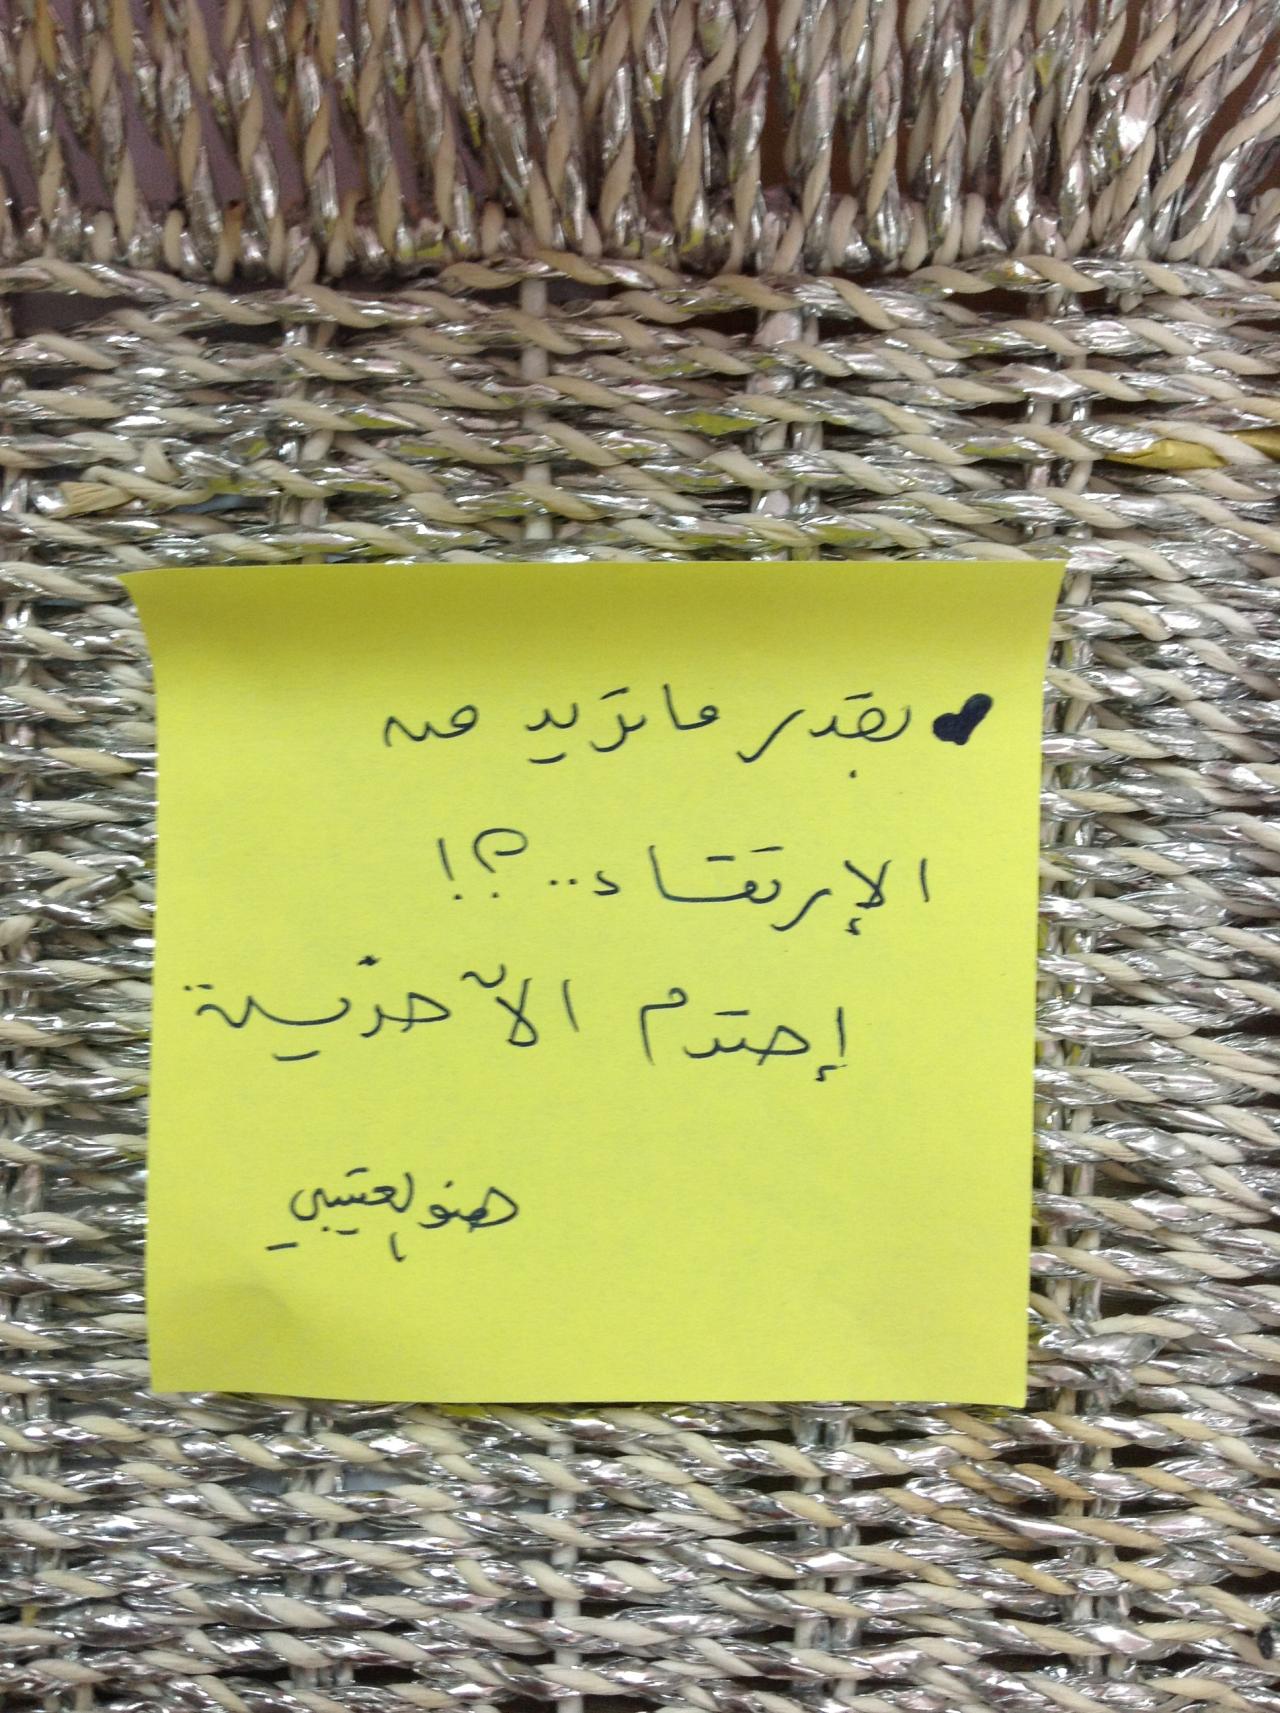 بقدر ما تريد من
الإرتقاء..؟!
إحترم الآخرين
هنو العتيبي